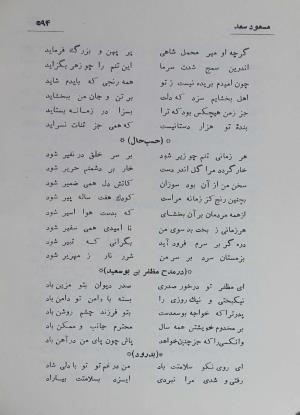 مسعود سعد
۵۹۴
گرچه او میر محمل شاهی پر پهن و بزرگ فرماید
اندرین سمج شدت سرما این تنم را چو زهر بگزاید
چون امیدم بریده نیست ز تو همه رنجی که بایدم شاید
اهل بخشایم سزد که دلت بر تن و جان من ببخشاید
جز زمن هیچکس بود که ترا بسزا در زمانه بستاید
بندهٔ تو هزار دستانیست که همی جز ثنات نسراید
*(حسب حال)*
هر زمانی تنم چو زیر شود بر سر خلق در نفیر شود
خار گردد مرا گل اندر دست خار بر دشمنم حریر شود
سخن من از آن بود سوزان کاتش دل همی ضمیر شود
بچنین رنج کز زمانه مراست کودک هفت ساله پیر شود
ازهمه مردمان بر آن بخشای که بدست هوا اسیر شود
هرزمانی ز بخت بد سوی من نا امیدی همی سفیر شود
ده گر بر سرم فرود آید بگرانی که ثبیر شود
بزمستان سرد بر سر من شرر نار ز مهریر شود
*(درمدح مظفر بی بوسعید)*
ای مظفر تو درخور صدری صدر دیوان بتو مزین باد
نیکبختی و نیک روزی را بسته با دامن تو دامن باد
پدوتراکه خواجه بوسعدست بتو فرزند چشم روشن باد
بر مخدوم خویشتن همه سال محترم جانب و ممکن باد
وانکسی را که جز چنین خواهد پاش چون پای من در آهن باد
*(بدرود)*
ای روی نکو سلامت باد من در غم تو تو با دلی شاد
رفتی و شدی مرا نبردی ایزد بسلامتت بیاراد